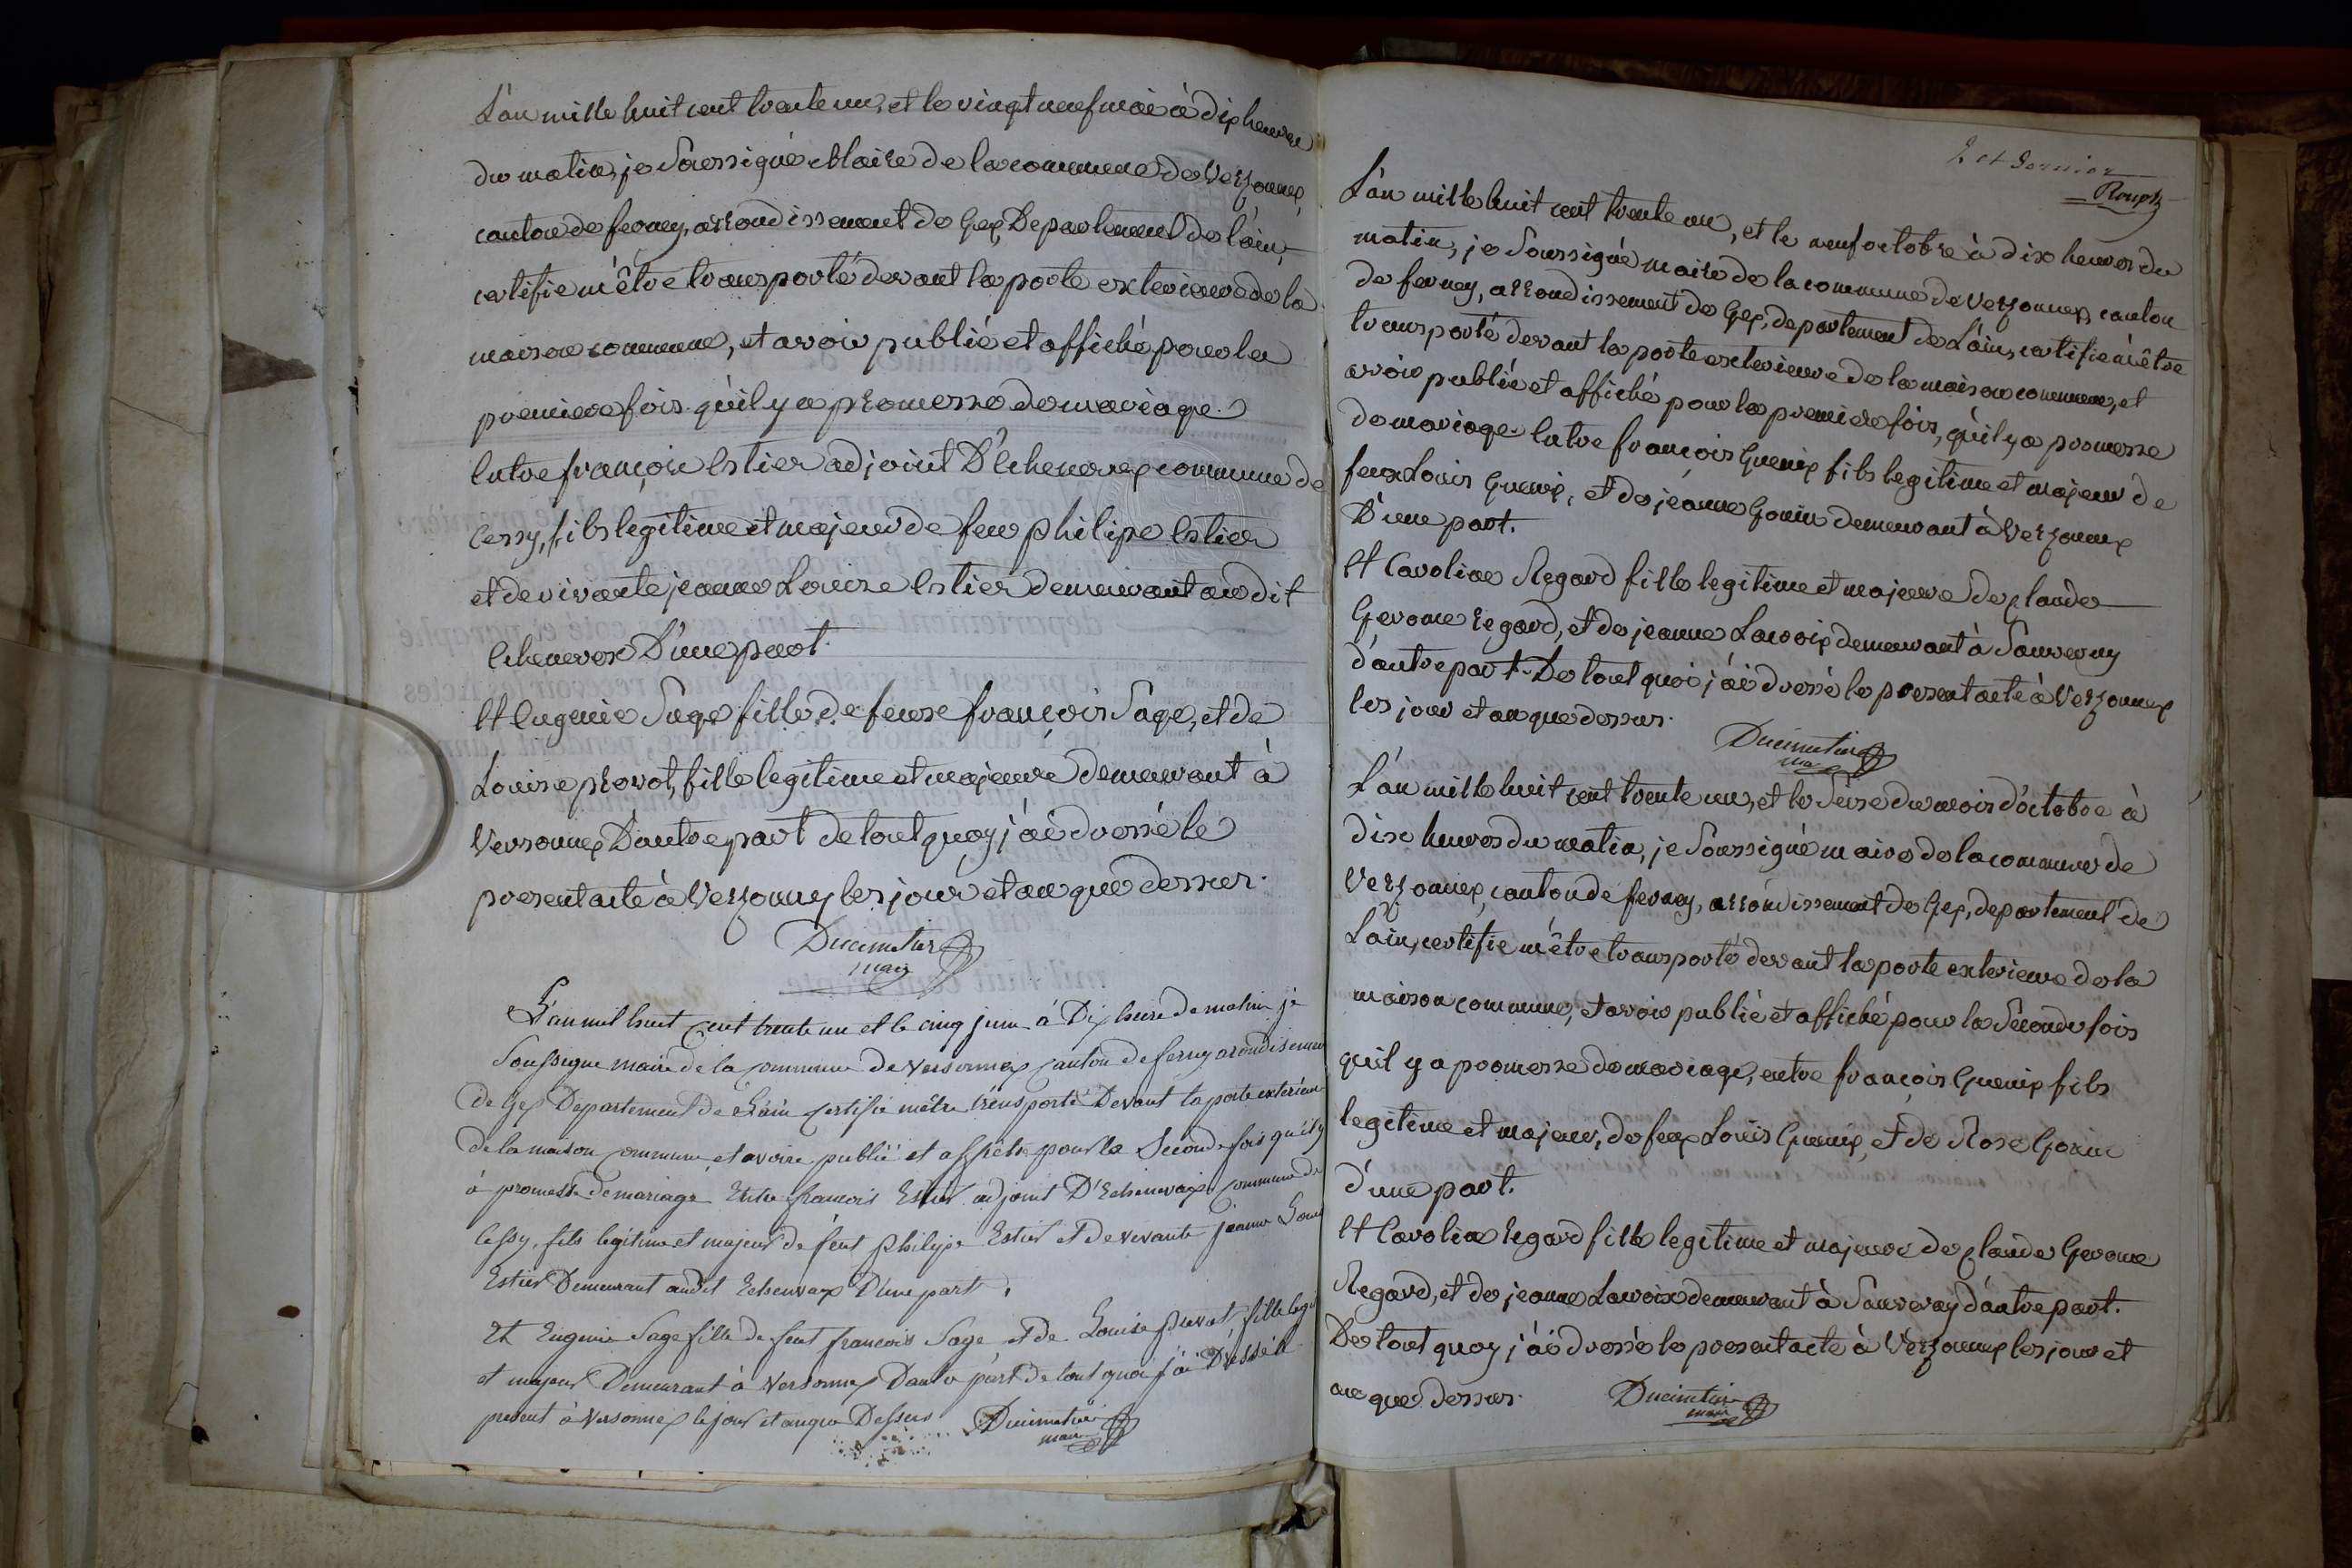 L'an mille huit cent trente un, et le vingt neuf mai à dix heures
du matin, je Soussigné Maire de la commune de Verzonnex,
canton de ferney, arrondissement de Gex, Departement de l'ain,
certifie m'être transporté devant la porte exterieure de la
maison commune, et avoir publié et affiché pour la
premiere fois qu'il y a promesse de mariage
Entre françois Estier adjoint D'Echenevex commune de
Cessy, fils legitime et majeur de feu philipe Estier
et de vivante jeanne Louise Estier demeurant au dit
Echenevex D'une part.
Et Eugenie Sage fille de feux françois Sage, et de
Louise prevot, fille legitime et majeure demeurant à
Versonnex D'autre part de tout quoy j'ai dressé le
present acte à Verzonnex les jour et an que dessus.
Ducimetier
maire
L'an mil huit cent trente un et le cinq juin à Dix heure de matin je
Soussigne maire de la commune de Versonnex canton de ferney arondisement
de Gex Departement de L'ain certifie mêtre trensporté Devant la porte exterieure
de la maison commune et avoire publié et affiché pour la Seconde fois qu'il y
à promesse de mariage Entre francois Estier adjoint D'Echenevaix commune de
Cessy, fils legitime et majeur de feut Philipe Estier et De vivante jeanne Louise
Estier Demeurant audit Echenvaix D'une part,
Et Eugenie Sage fille de feut francois Sage, et de Louise prevot, fille legit
et majeur Demeurant à Versonnex Dautre part de tout quoi j'ai Dréssé le
present à Versonnex le jour et an que Dessus Ducimetier
maire
2 et dernier
Rouph
L'an mille huit cent trente un, et le neuf octobre à dix heures du
matin, je Soussigné maire de la commune de Verzonnex, canton
de ferney, arrondissement de Gex, departement de L'ain, certifie m'être
transporté devant la porte exterieure de la maison commune, et
avoir publié et affiché pour la premiere fois, qu'il y a promesse
de mariage. Entre françois Guenix fils legitime et majeur de
feux Louis Guenix, et de jeanne Gonin demeurant à Verzonnex
D'une part.
Et Caroline Regard fille legitime et majeure de Claude
Gerome regard, et de jeanne Lacroix demeurant à Sauverny
d'autre part. De tout quoi j'ai dressé le present acte à Verzonnex
les jour et an que dessus.
Ducimetier
maire
L'an mille huit cent trente un, et le Seize du mois d'octobre à
dix heures du matin, je Soussigné maire de la commune de
Verzonnex, canton de ferney, arrondissement de Gex, departement de
L'ain, certifie m'être transporté devant la porte exterieure de la
maison commune, et avoir publié et affiché pour la Seconde fois
qu'il y a promesse de mariage, entre françois Guenix fils
legitime et majeur, de feux Louis Guenix, et de Rose Gonin
d'une part.
Et Caroline regard fille legitime et majeure de Claude Gerome
Regard, et de jeanne Lacroix demeurant à Sauverny d'autre part.
De tout quoy j'ai dressé le present acte à Verzonnex les jour et
an que dessus. Ducimetier
maire